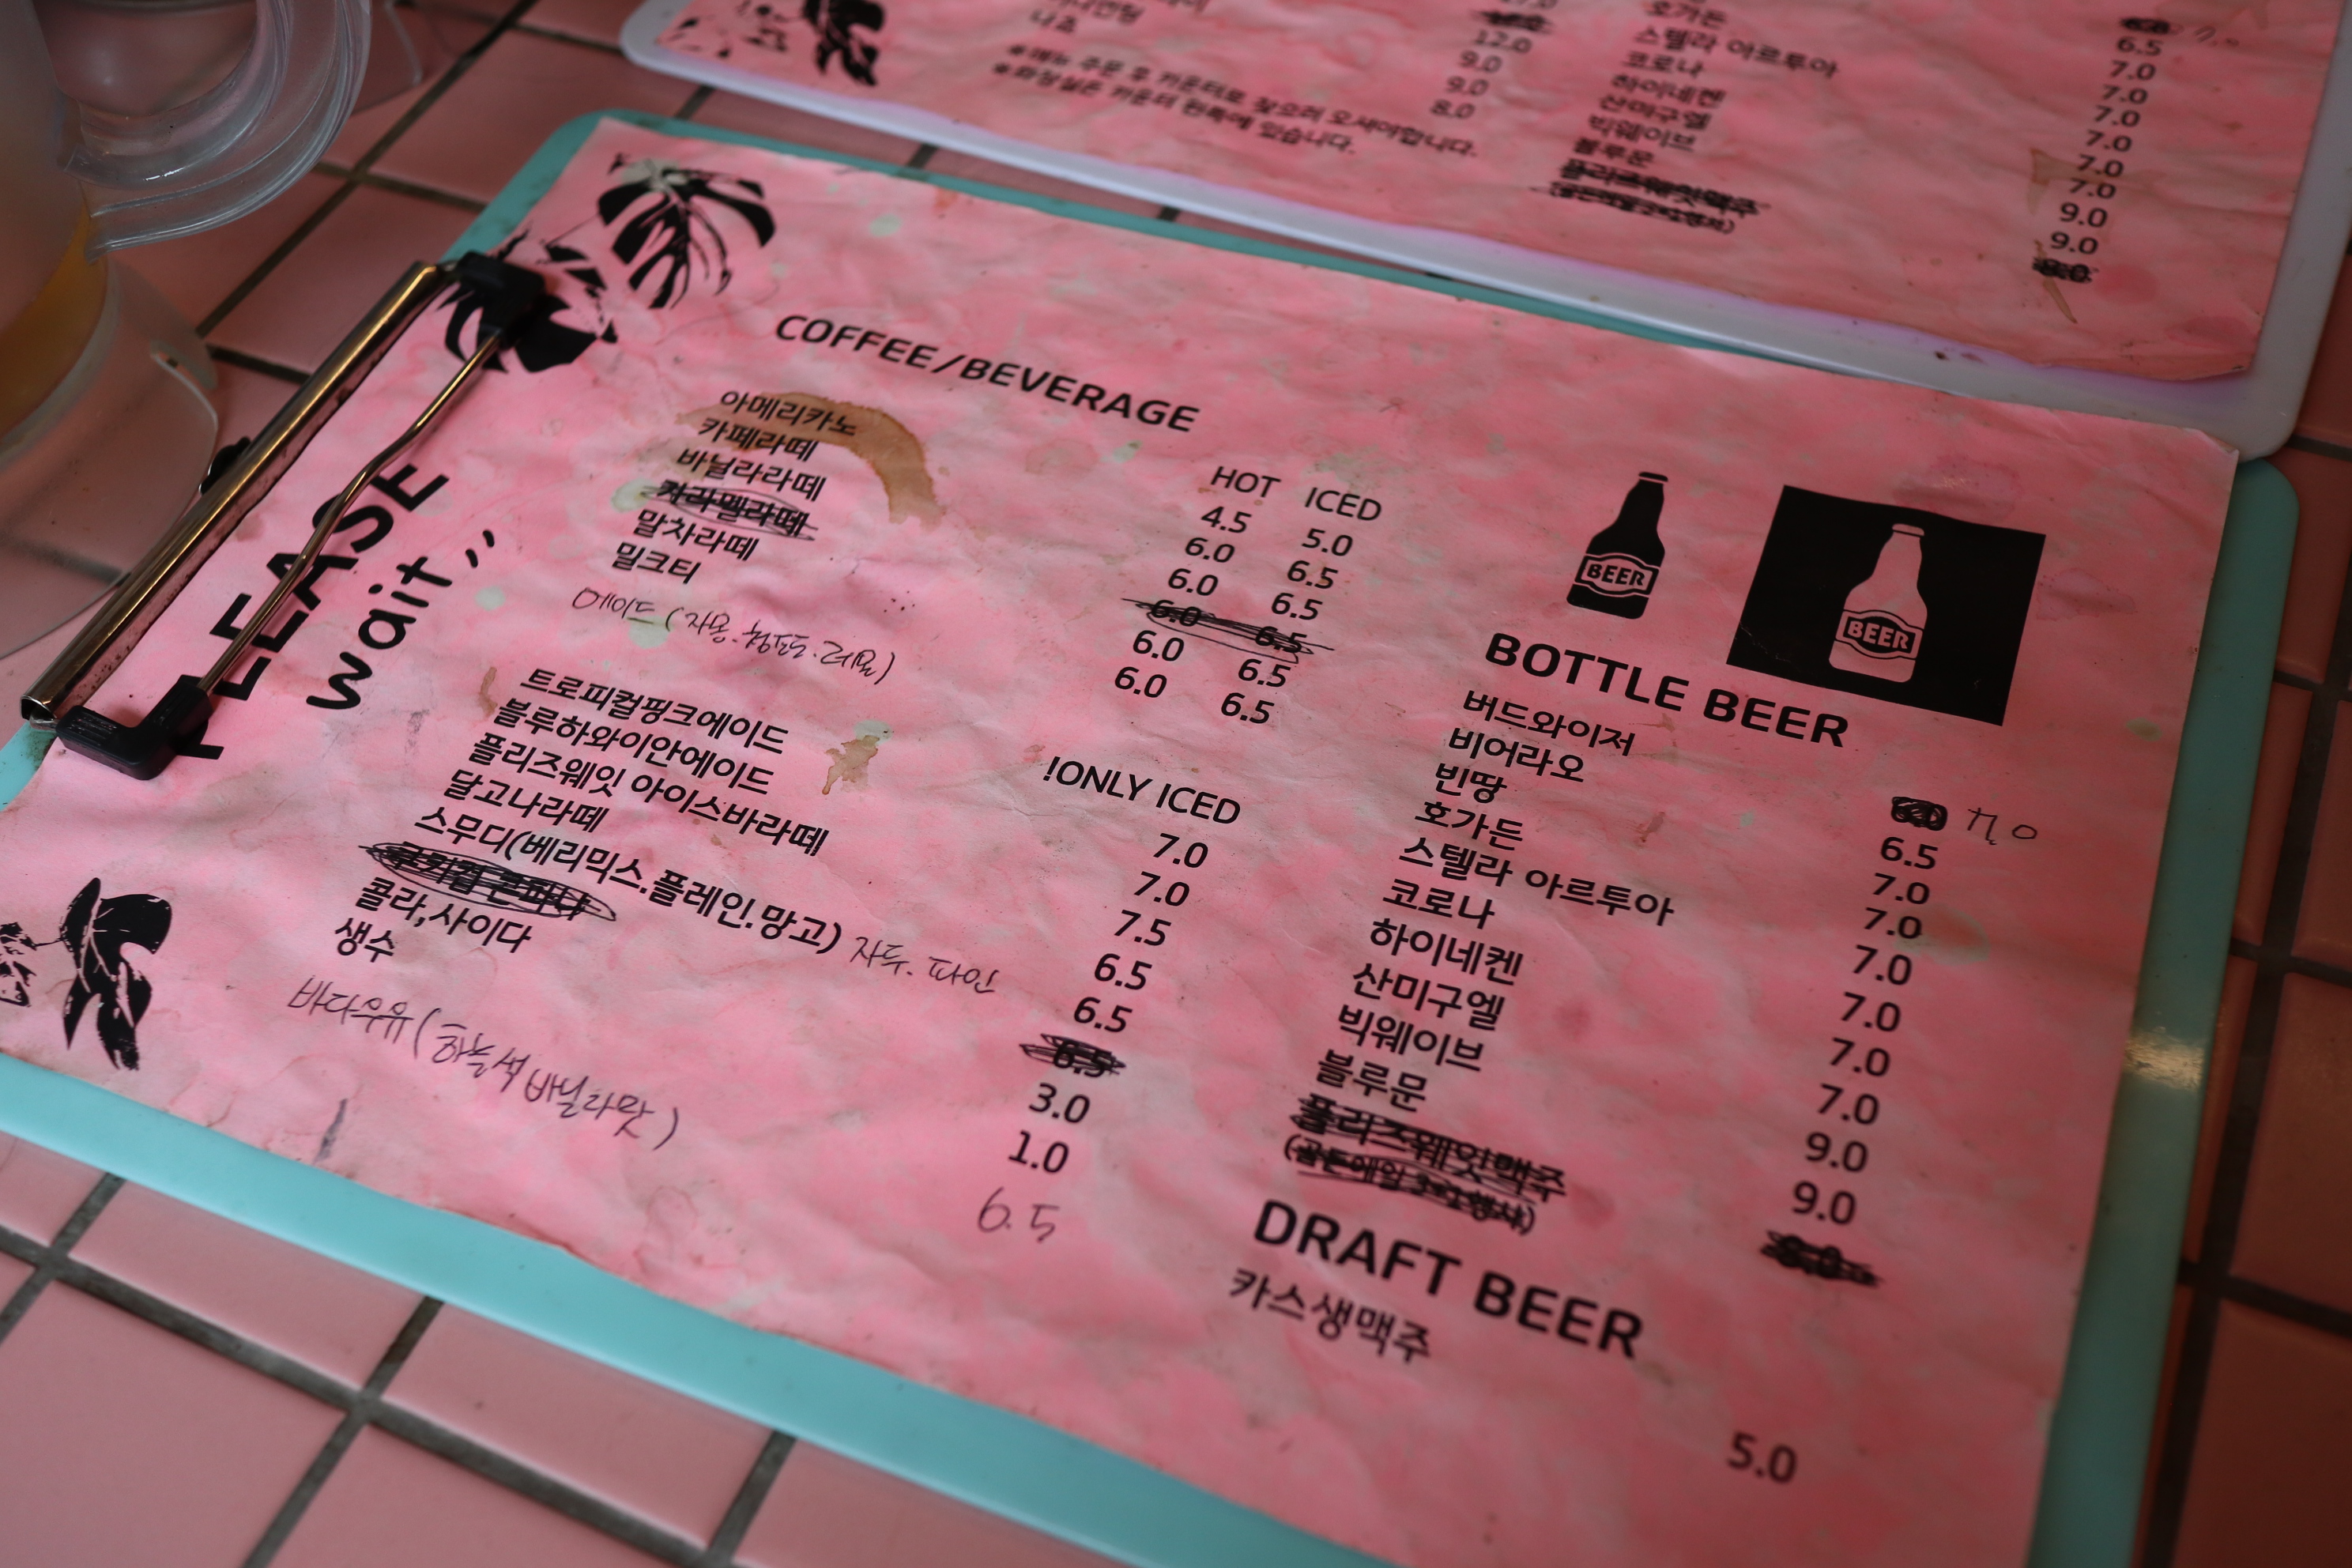 12.0
9.0
9.0
8.0
나쵸
※메뉴 주문 후 카운터로 찾으러 오셔야합니다.
※화장실은 카운터 왼쪽에 있습니다.
호가든
스텔라 아르투아
코로나
하이네켄
산미구엘
빅웨이브
블루문
플리즈웨잇맥주
6.5
7.0
7.0
7.0
7.0
7.0
7.0
9.0
9.0
PLEASE
wait,,
COFFEE/BEVERAGE
HOT ICED
아메리카노 4.5 5.0
카페라떼 6.0 6.5
바닐라라떼 6.0 6.5
카라멜라떼 6.0 6.5
말차라떼 6.0 6.5
밀크티 6.0 6.5
에이드 (자몽.청포도.레몬)
!ONLY ICED
트로피컬핑크에이드 7.0
블루하와이안에이드 7.0
플리즈웨잇 아이스바라떼 7.5
달고나라떼 6.5
스무디(베리믹스.플레인.망고) 자두. 파인 6.5
6.5
콜라,사이다 3.0
생수 1.0
바다우유 (하늘색 바닐라맛) 6.5
BEER
BEER
BOTTLE BEER
버드와이저 7.0
비어라오 6.5
빈땅 7.0
호가든 7.0
스텔라 아르투아 7.0
코로나 7.0
하이네켄 7.0
산미구엘 7.0
빅웨이브 9.0
블루문 9.0
플리즈웨잇맥주
(골든에일 3+1행사)
DRAFT BEER
카스생맥주 5.0